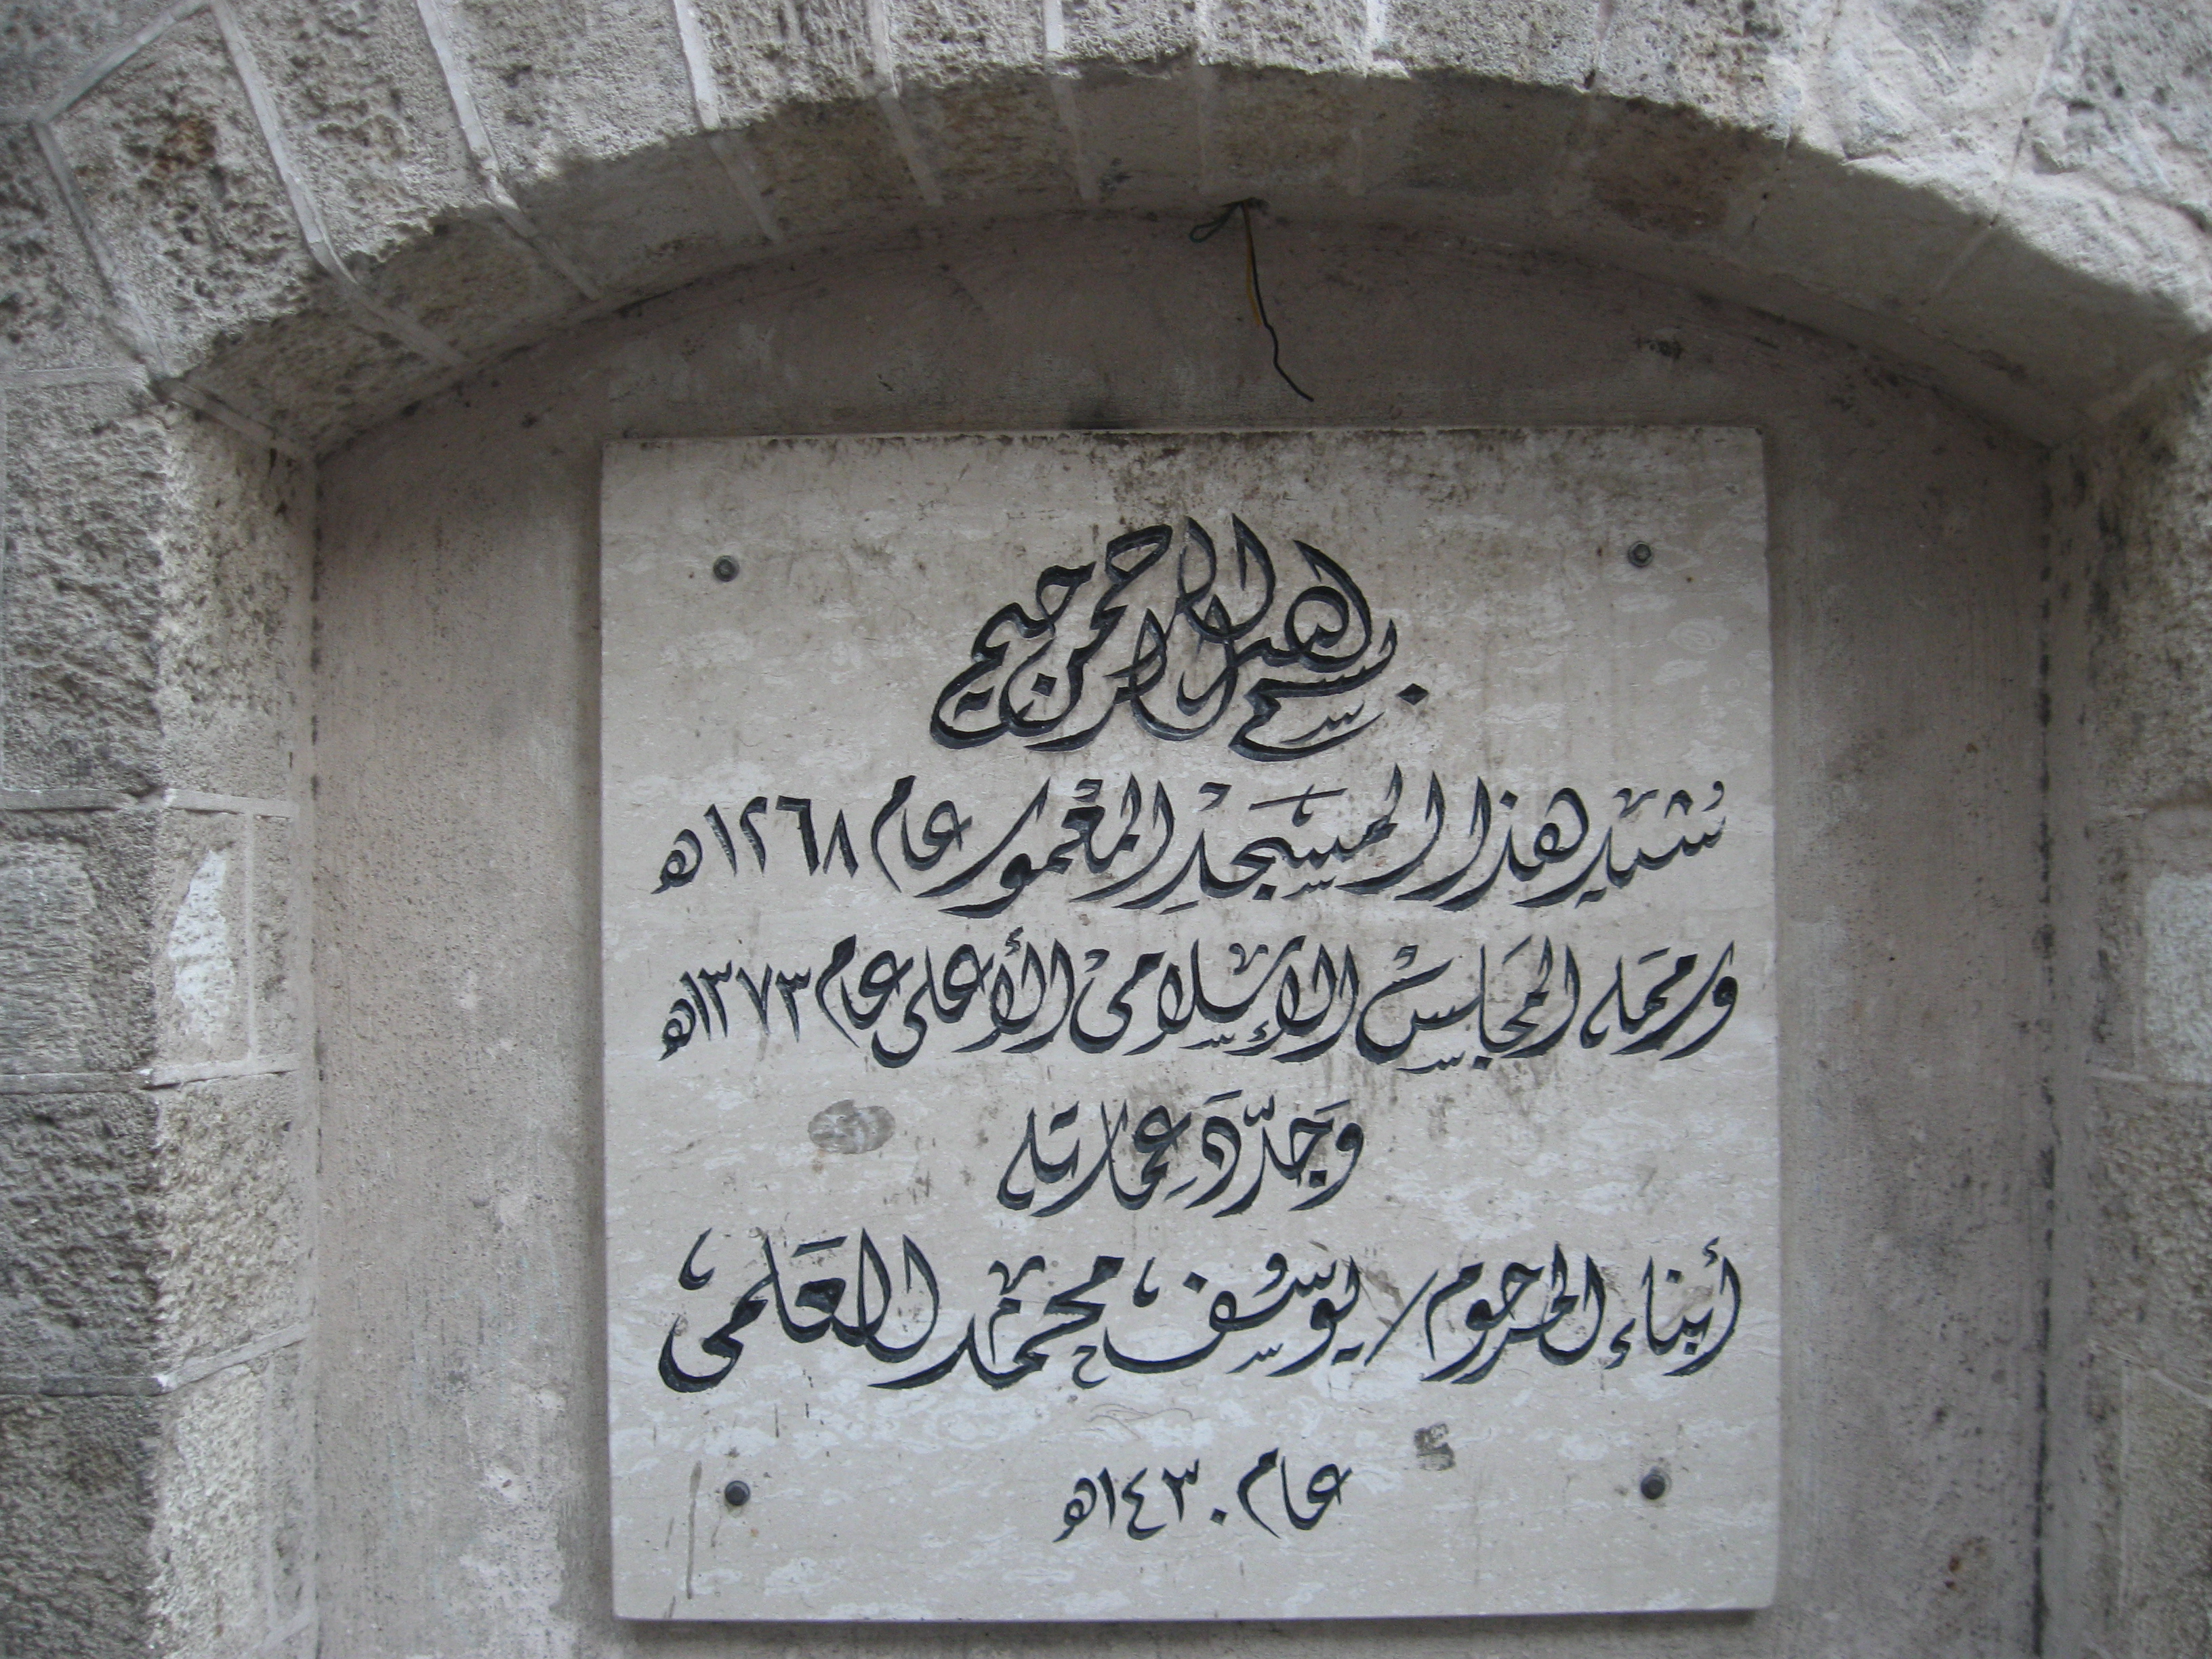 بسم الله الرحمن الرحيم
شيد هذا المسجد المعمور عام ١٢٦٨ه
ورممه المجلس الإسلامي الأعلى عام ١٣٧٣ه
وَجَدّدَ عِمارته
أبناء المرحوم/ يوسف محمد العلمي
عام ١٤٣٠ه